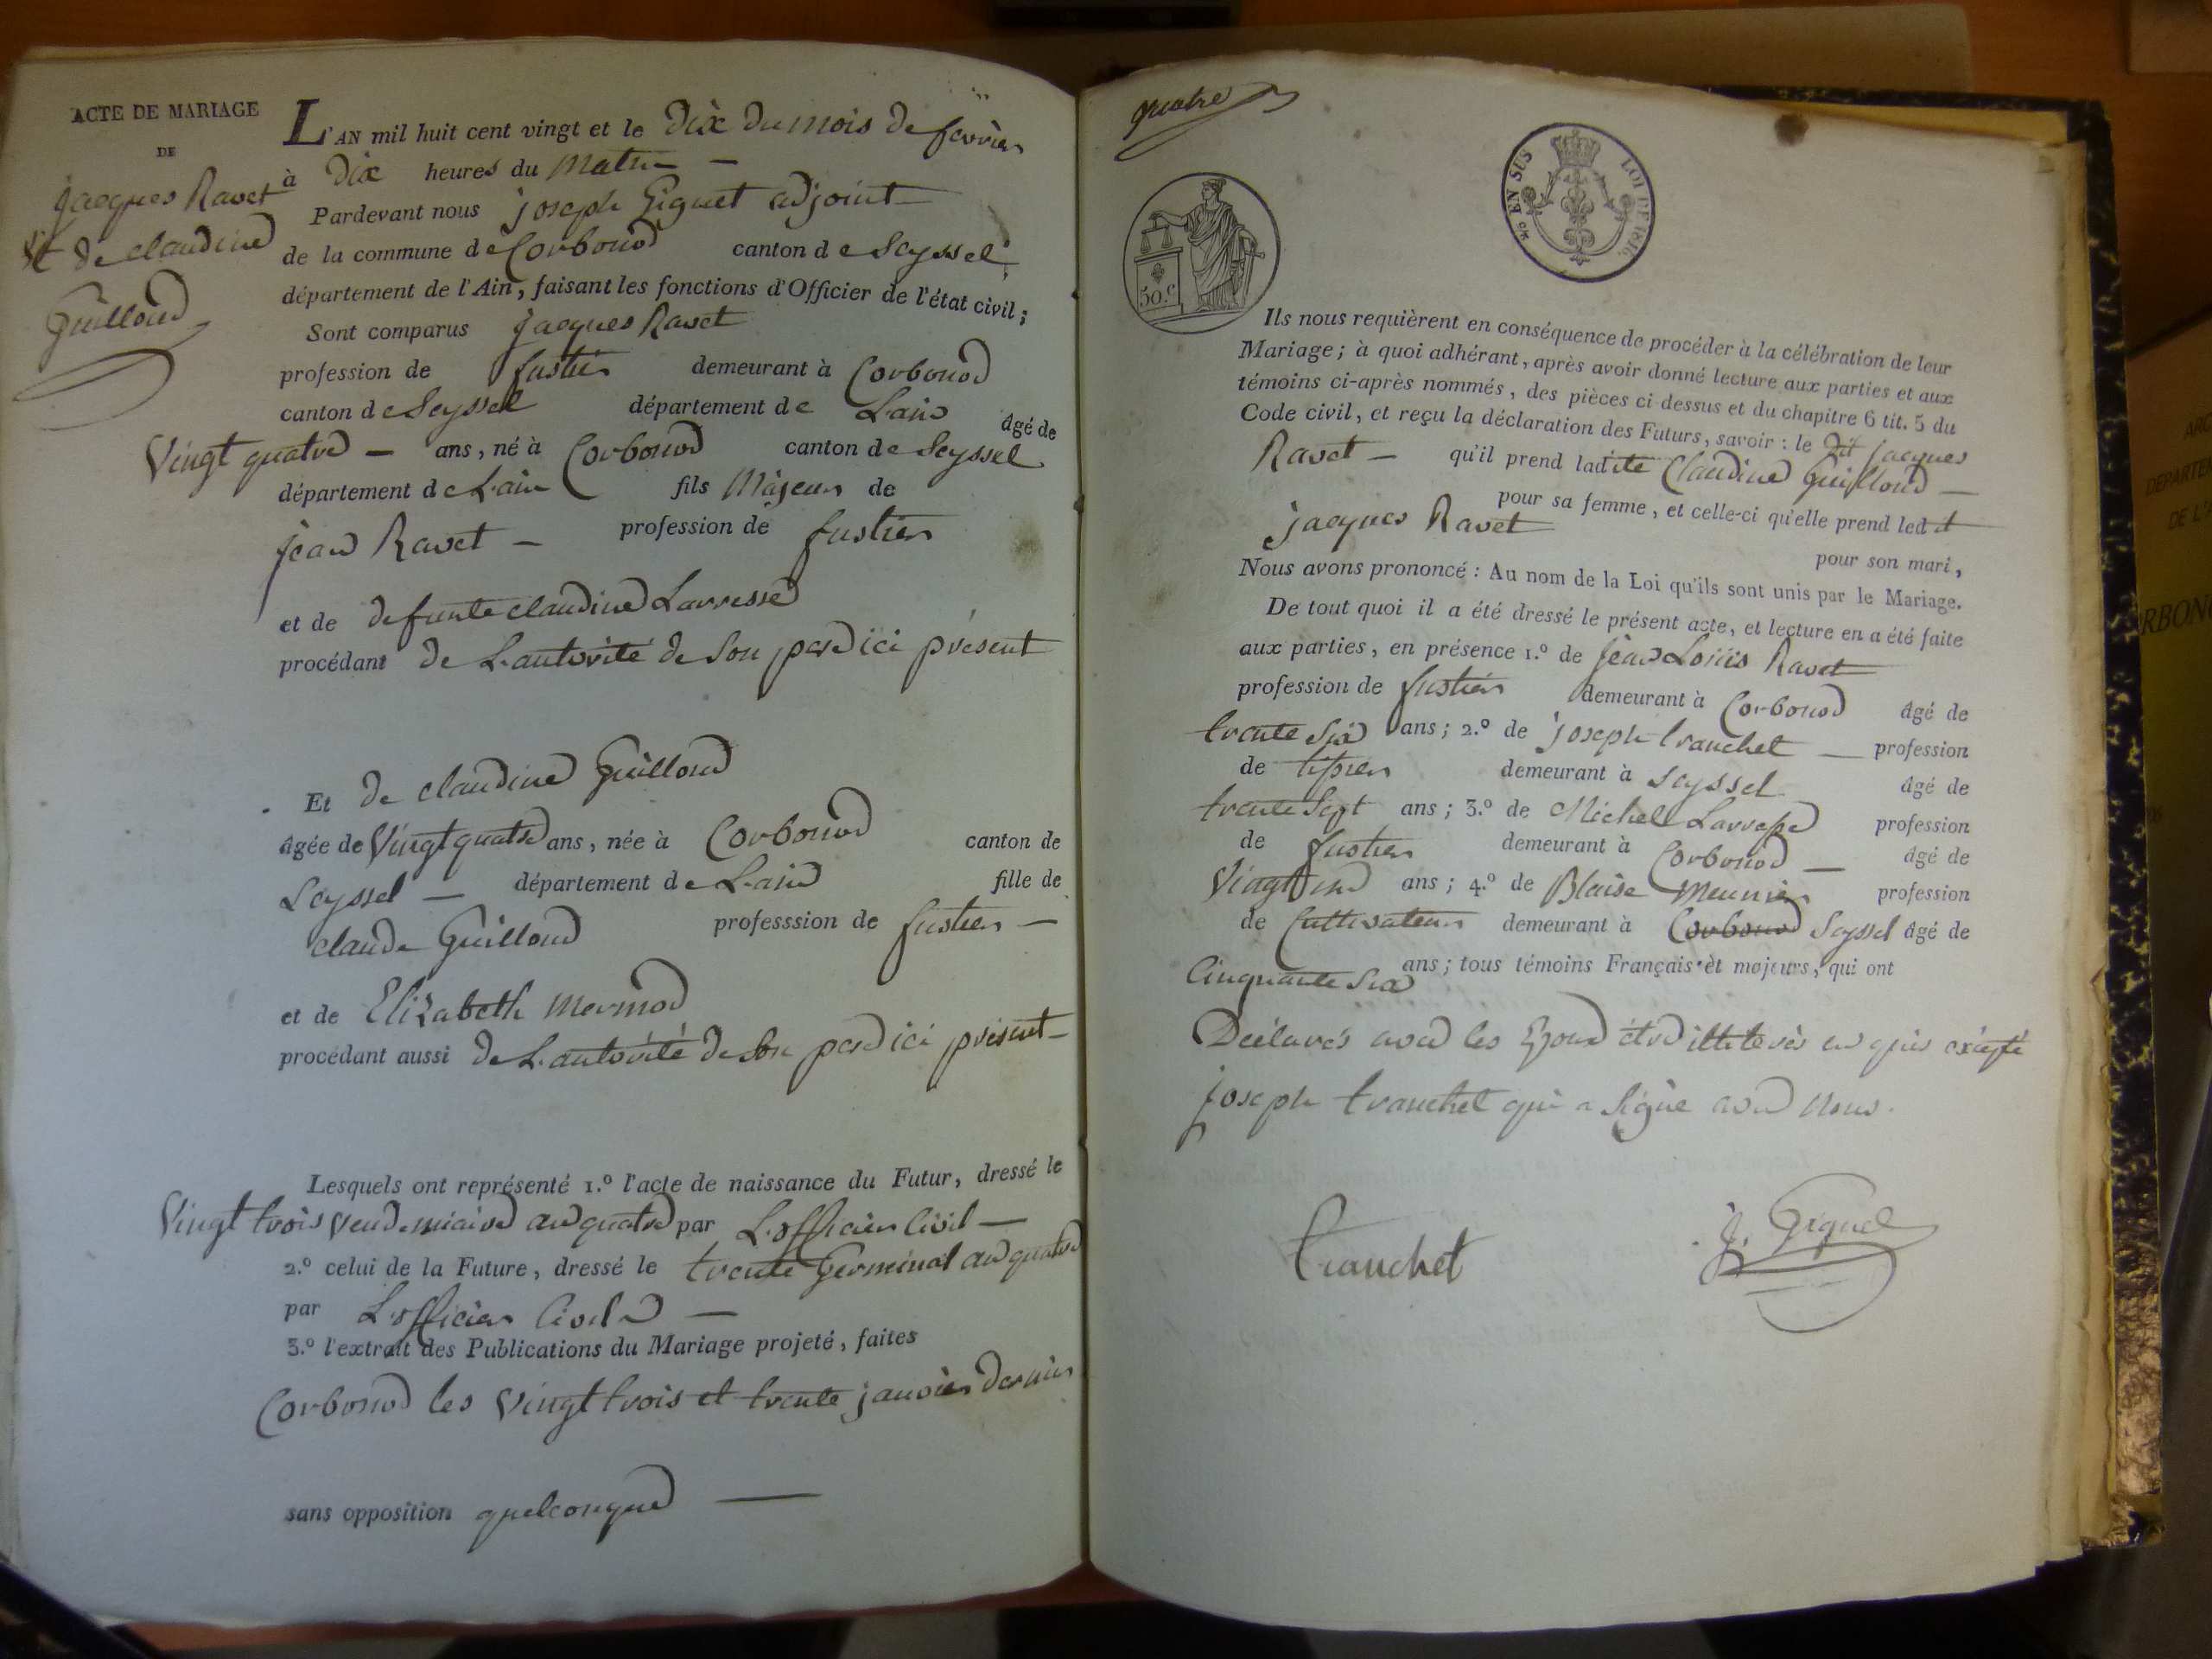 ACTE DE MARIAGE
DE
jacques Ravet
Et de claudine
Guilloud
L'AN mil huit cent vingt et le dix du mois de fevrier
à dix heures du Matin —
Pardevant nous joseph Giguet adjoint
de la commune de Corbonod canton de Seyssel
département de l'Ain, faisant les fonctions d'Officier de l'état civil;
Sont comparus jacques Ravet
profession de fustier demeurant à Corbonod
canton de Seyssel département de L'ain âgé de
Vingt quatre — ans, né à Corbonod canton de Seyssel
département de L'ain fils Majeur de
jean Ravet — profession de fustier
et de defunte claudine Larresse
procédant de L'autorité de son pere ici présent
Et de claudine Guilloud
âgée de Vingt quatre ans, née à Corbonod canton de
Seyssel — département de L'ain fille de
claude Guilloud professsion de fustier —
et de Elizabeth Mermod
procédant aussi de L'autorité de son pere ici présent —
Lesquels ont représenté 1.º l'acte de naissance du Futur, dressé le
Vingt trois vendemiaire an quatre par L'officier Civil —
2.º celui de la Future, dressé le trente Germinal an quatre
par L'officier Civil —
3.º l'extrait des Publications du Mariage projeté, faites
Corbonod les Vingt trois et trente janvier dernier
sans opposition quelconque —
quatre
EN SUS LOI DE 1816
50.c
Ils nous requièrent en conséquence de procéder à la célébration de leur
Mariage; à quoi adhérant, après avoir donné lecture aux parties et aux
témoins ci-après nommés, des pièces ci dessus et du chapitre 6 tit. 5 du
Code civil, et reçu la déclaration des Futurs, savoir: le dit jacques
Ravet — qu'il prend ladite Claudine Guilloud —
pour sa femme, et celle-ci qu'elle prend ledit
jacques Ravet pour son mari,
Nous avons prononcé: Au nom de la Loi qu'ils sont unis par le Mariage.
De tout quoi il a été dressé le présent acte, et lecture en a été faite
aux parties, en présence 1.º de jean Louis Ravet
profession de fustier demeurant à Corbonod âgé de
trente six ans; 2.º de joseph tranchet — profession
de tissier demeurant à Seyssel âgé de
trente Sept ans; 3.º de Michel Larresse profession
de fustier demeurant à Corbonod — âgé de
Vingt un ans; 4.º de Blaise Meunier profession
de Cultivateur demeurant à Corbonod Seyssel âgé de
Cinquante Six ans; tous témoins Français et majeurs, qui ont
Déclarés avec les Epoux être illiterés
joseph tranchet qui a signé avec nous.
Tranchet
J. Giguet
ARC
DEPARTEM
DE L'A
RBONO